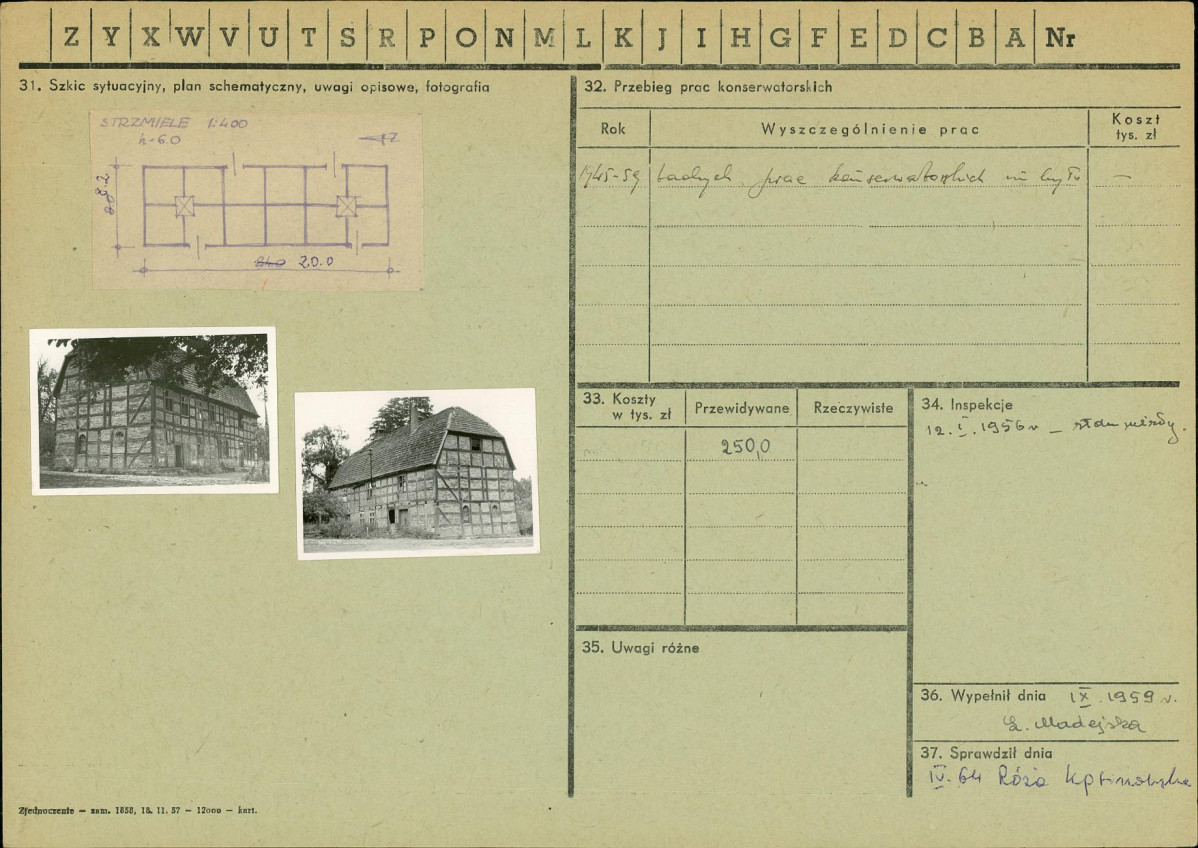 Z Y X W V U T S R P O N M L K J I H G F E D C B A Nr
31. Szkic sytuacyjny, plan schematyczny, uwagi opisowe, fotografia
STRZMIELE 1:400
h-6.0
8.2
20.0
32. Przebieg prac konserwatorskich
Rok
Wyszczególnienie prac
Koszt
tys. zł
1945-59 żadnych prac konserwatorskich nie było —
33. Koszty
w tys. zł
Przewidywane
Rzeczywiste
250,0
34. Inspekcje
12.I.1956 r —
35. Uwagi różne
36. Wypełnił dnia IX.1959 r.
Ł. Madejska
37. Sprawdził dnia
IV.64 Róża
Zjednoczenie — zam. 1858, 18. 11. 57 — 12000 — kart.